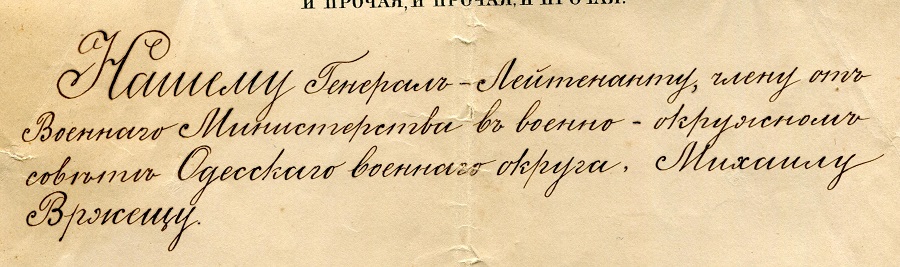 И ПРОЧАЯ, И ПРОЧАЯ, И ПРОЧАЯ.
Нашему Генералъ-Лейтенанту, члену отъ
Военнаго Министерства въ военно-окружномъ
совѣтѣ Одесскаго военнаго округа, Михаилу
Вржещу.